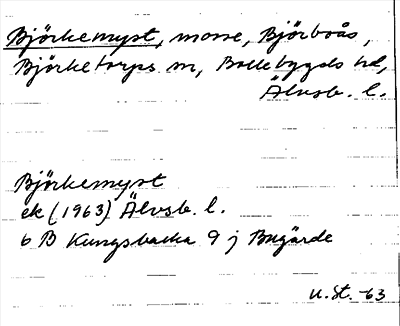 Björkemyst, mosse, Björboås,
Björketorps sn, Bollebygds hd,
Älvsb. l.
Björkemyst
ek (1963) Älvsb. l.
6 B Kungsbacka 9 j Bugärde
U. St. -63